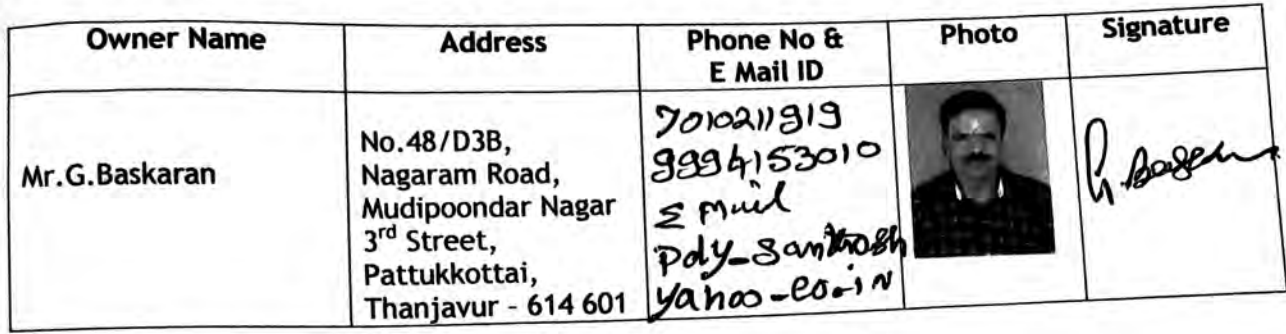 Owner Name
Address
Phone No &
E Mail ID
Photo
Signature
Mr.G.Baskaran
No.48/D3B,
Nagaram Road,
Mudipoondar Nagar
3rd Street,
Pattukkottai,
Thanjavur - 614 601
7010211919
9994153010
E Mail
Poly_Santhosh
yahoo-co.in